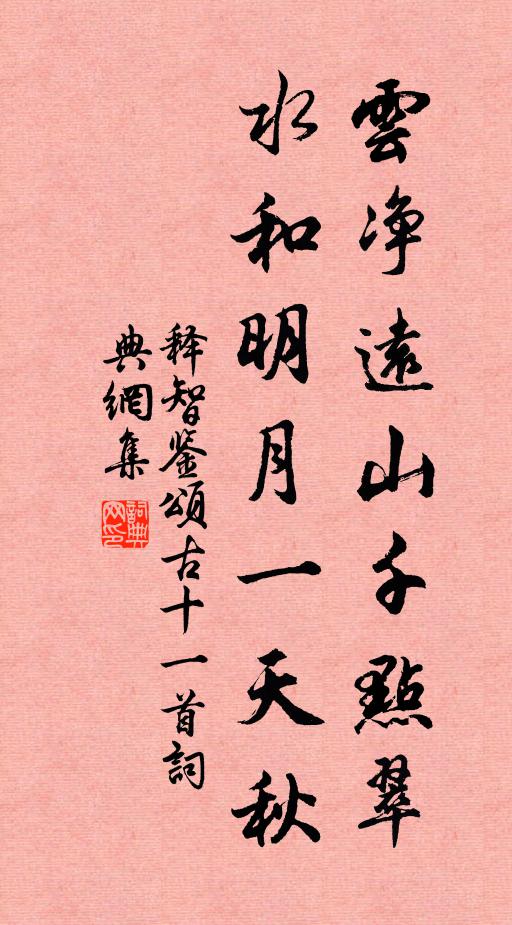 雲净遠山千點翠
水和明月一天秋
释智鉴頌古十一首詞
典網集
詞典网印